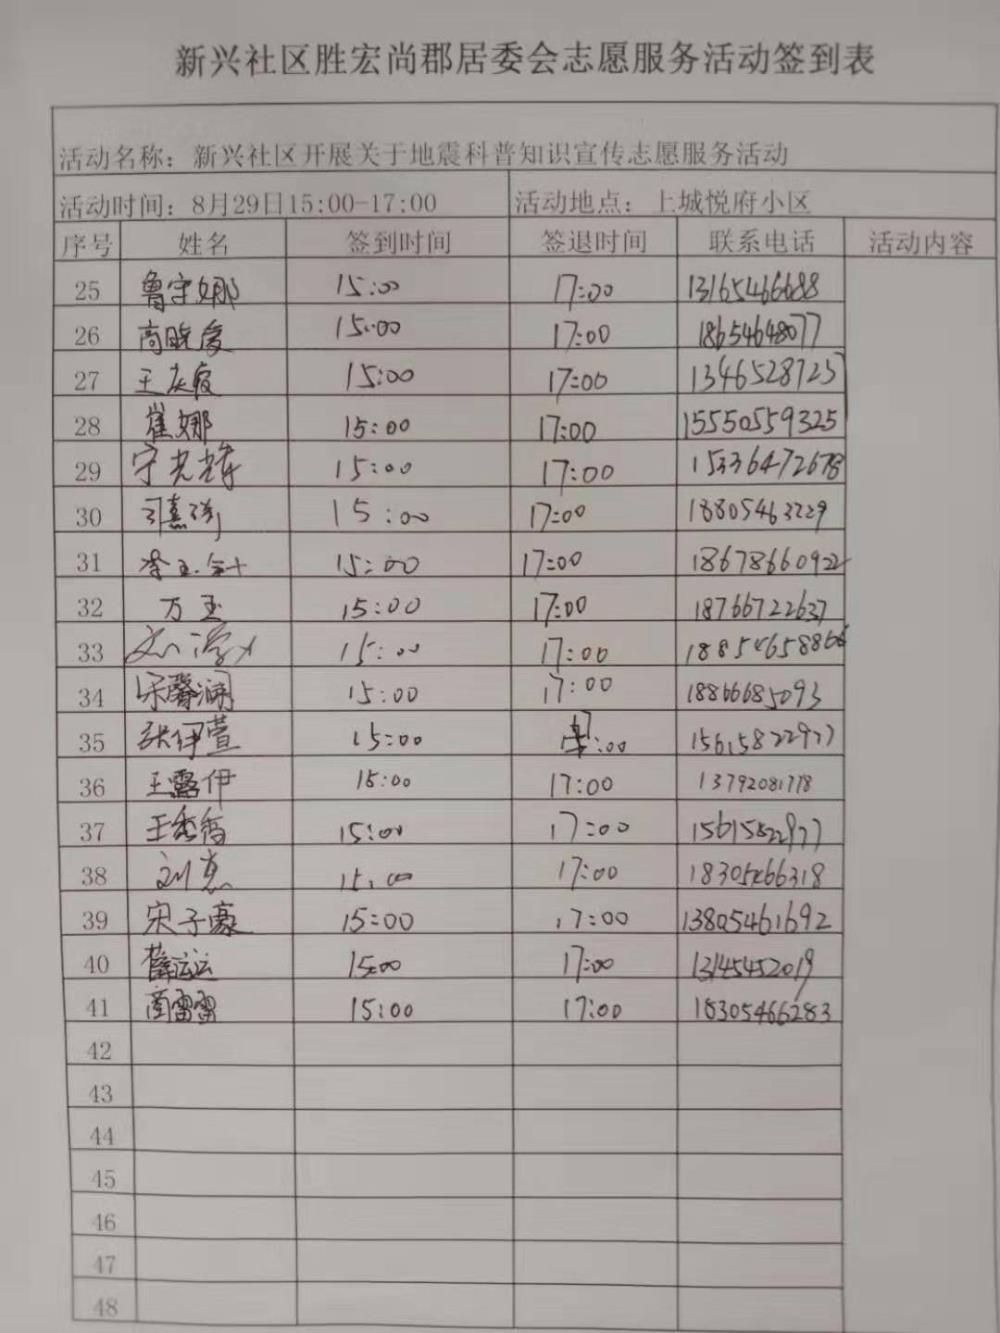 新兴社区胜宏尚郡居委会志愿服务活动签到表
活动名称：新兴社区开展关于地震科普知识宣传志愿服务活动
活动时间：8月29日15:00-17:00 活动地点：上城悦府小区
序号 姓名 签到时间 签退时间 联系电话 活动内容
25 鲁守娜 15:00 17:00 13165466688
26 高晓爱 15:00 17:00 18654648077
27 王庆霞 15:00 17:00 13465287251
28 崔娜 15:00 17:00 15550559325
29 宁光辉 15:00 17:00 15336472678
30 15:00 17:00 18805463229
31 15:00 17:00 18678660922
32 万玉 15:00 17:00 18766722637
33 15:00 17:00 18854658866
34 宋馨澜 15:00 17:00 18866685093
35 张伊萱 15:00 :00 15615822977
36 王露伊 15:00 17:00 13792081778
37 王秀香 15:00 17:00 15615822977
38 刘惠 15:00 17:00 18305466318
39 宋子豪 15:00 17:00 13805461692
40 薛运运 15:00 17:00 13145452019
41 商雷雷 15:00 17:00 18305466283
42
43
44
45
46
47
48